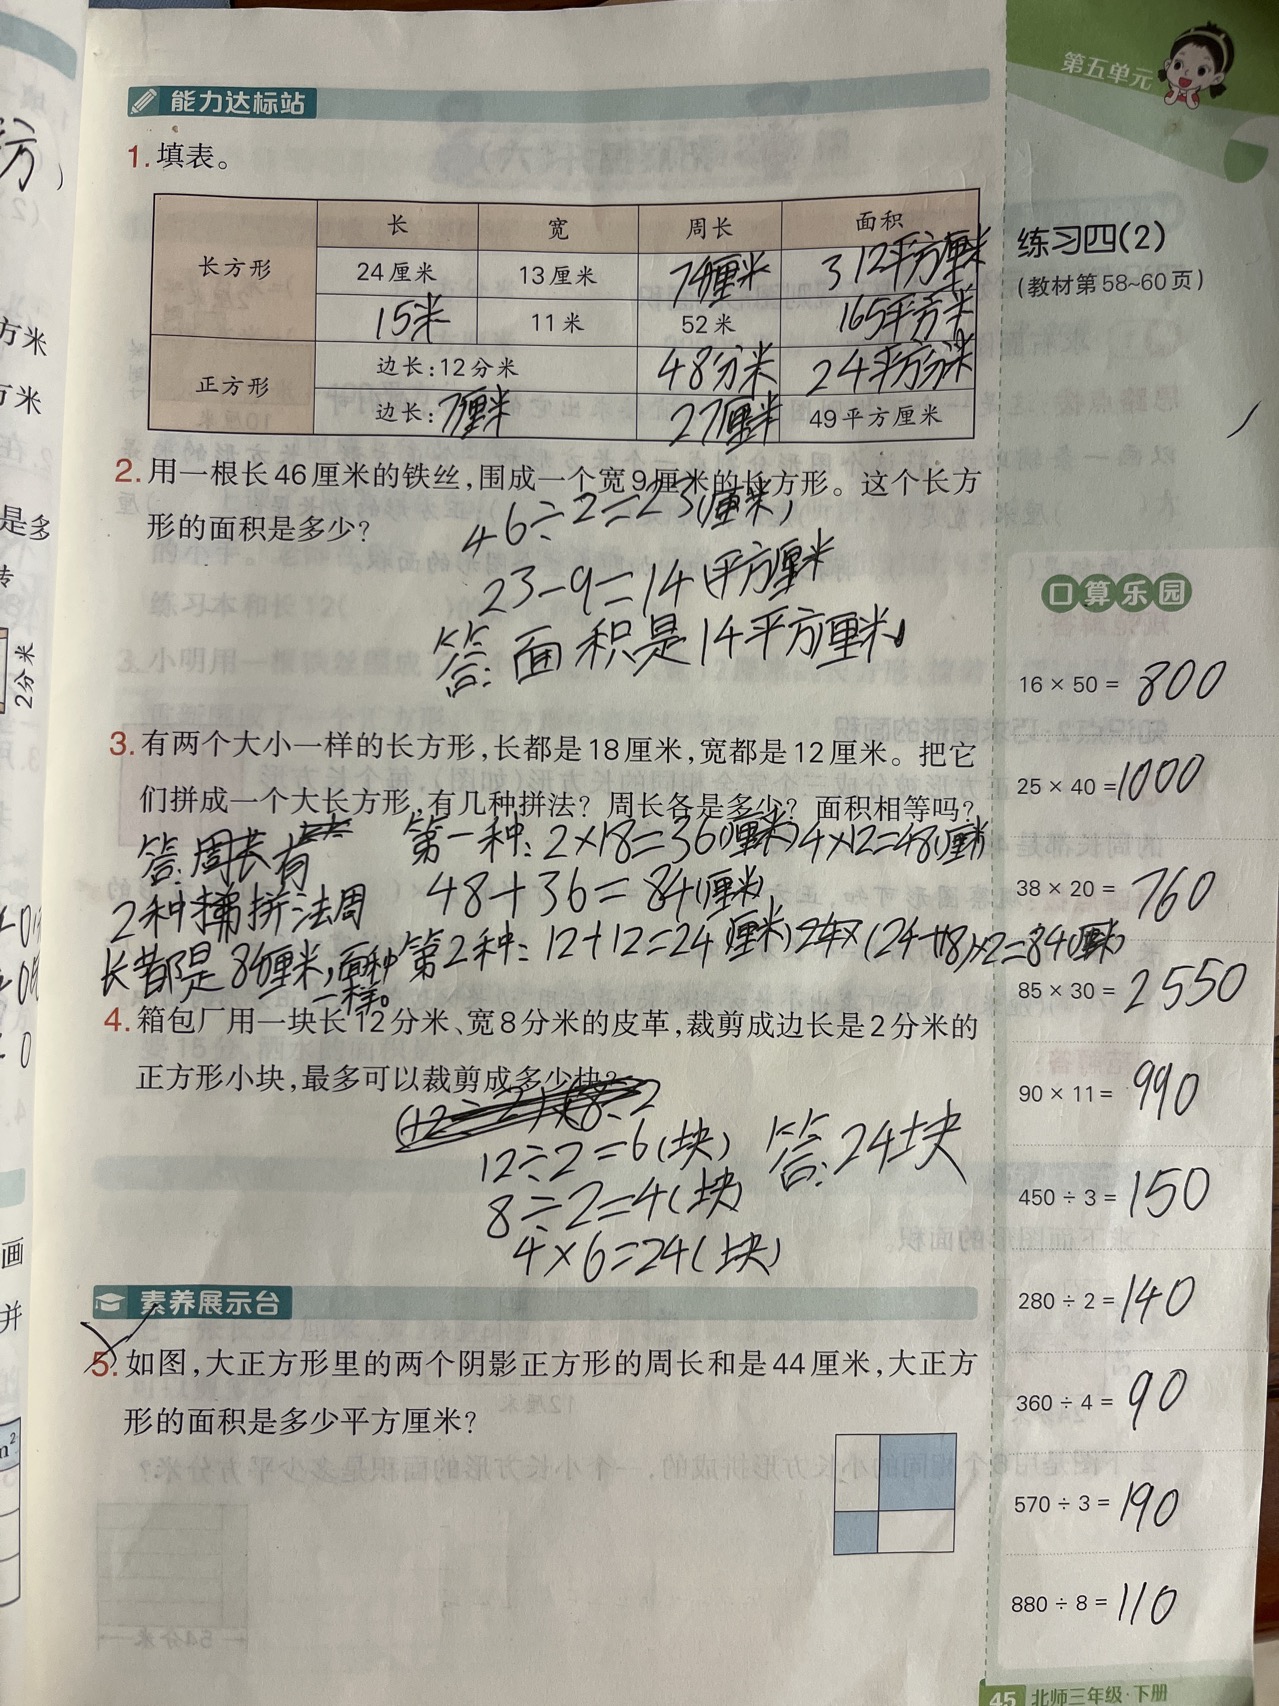 第五单元
能力达标站
1. 填表。
长方形 长 宽 周长 面积
24厘米 13厘米 74厘米 312平方厘米
15米 11米 52米 165平方米
正方形 边长:12分米 48分米 24平方分米
边长:7厘米 27厘米 49平方厘米
2. 用一根长46厘米的铁丝,围成一个宽9厘米的长方形。这个长方
形的面积是多少?
46÷2=23(厘米)
23-9=14(平方厘米
答:面积是14平方厘米。
3. 有两个大小一样的长方形,长都是18厘米,宽都是12厘米。把它
们拼成一个大长方形,有几种拼法?周长各是多少?面积相等吗?
答:周长有
2种拼法周
长都是84厘米,面种
一样。
第一种:2×18=36(厘米)4×12=48(厘米)
48+36=84(厘米)
第2种:12+12=24(厘米)(24+18)×2=84(厘米)
4. 箱包厂用一块长12分米、宽8分米的皮革,裁剪成边长是2分米的
正方形小块,最多可以裁剪成多少块?
12÷2=6(块)
8÷2=4(块)
4×6=24(块)
答:24块
素养展示台
5. 如图,大正方形里的两个阴影正方形的周长和是44厘米,大正方
形的面积是多少平方厘米?
练习四(2)
(教材第58~60页)
口算乐园
16×50=800
25×40=1000
38×20=760
85×30=2550
90×11=990
450÷3=150
280÷2=140
360÷4=90
570÷3=190
880÷8=110
45 北师三年级·下册
方
方米
是多
2分米
画
并